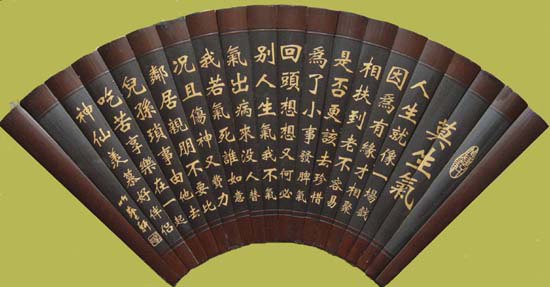 莫生氣
人生就像一場戲
因爲有緣才相聚
相扶到老不容易
是否更該去珍惜
爲了小事發脾氣
回頭想想又何必
別人生氣我不氣
氣出病來沒人替
我若氣死誰如意
況且傷神又費力
鄰居親朋不要比
兒孫瑣事由他去
吃苦享樂在一起
神仙羡慕好伴侶